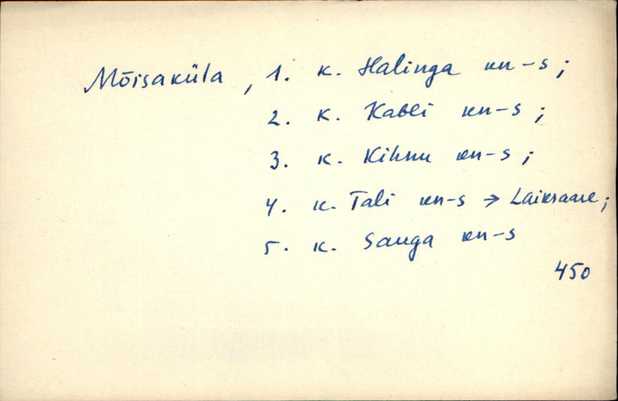 Mõisaküla, 1. k. Halinga kn-s;
2. k. Kabli kn-s;
3. k. Kihnu kn-s;
4. k. Tali kn-s → Laiksaare;
5. k. Sauga kn-s
450